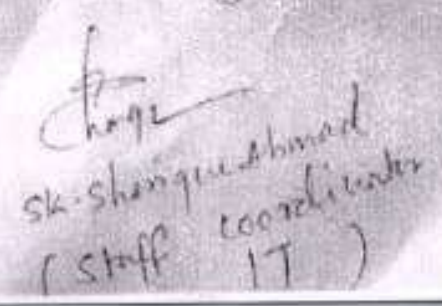 Sk. Sharique Ahmad
( Staff coordinator
IT )